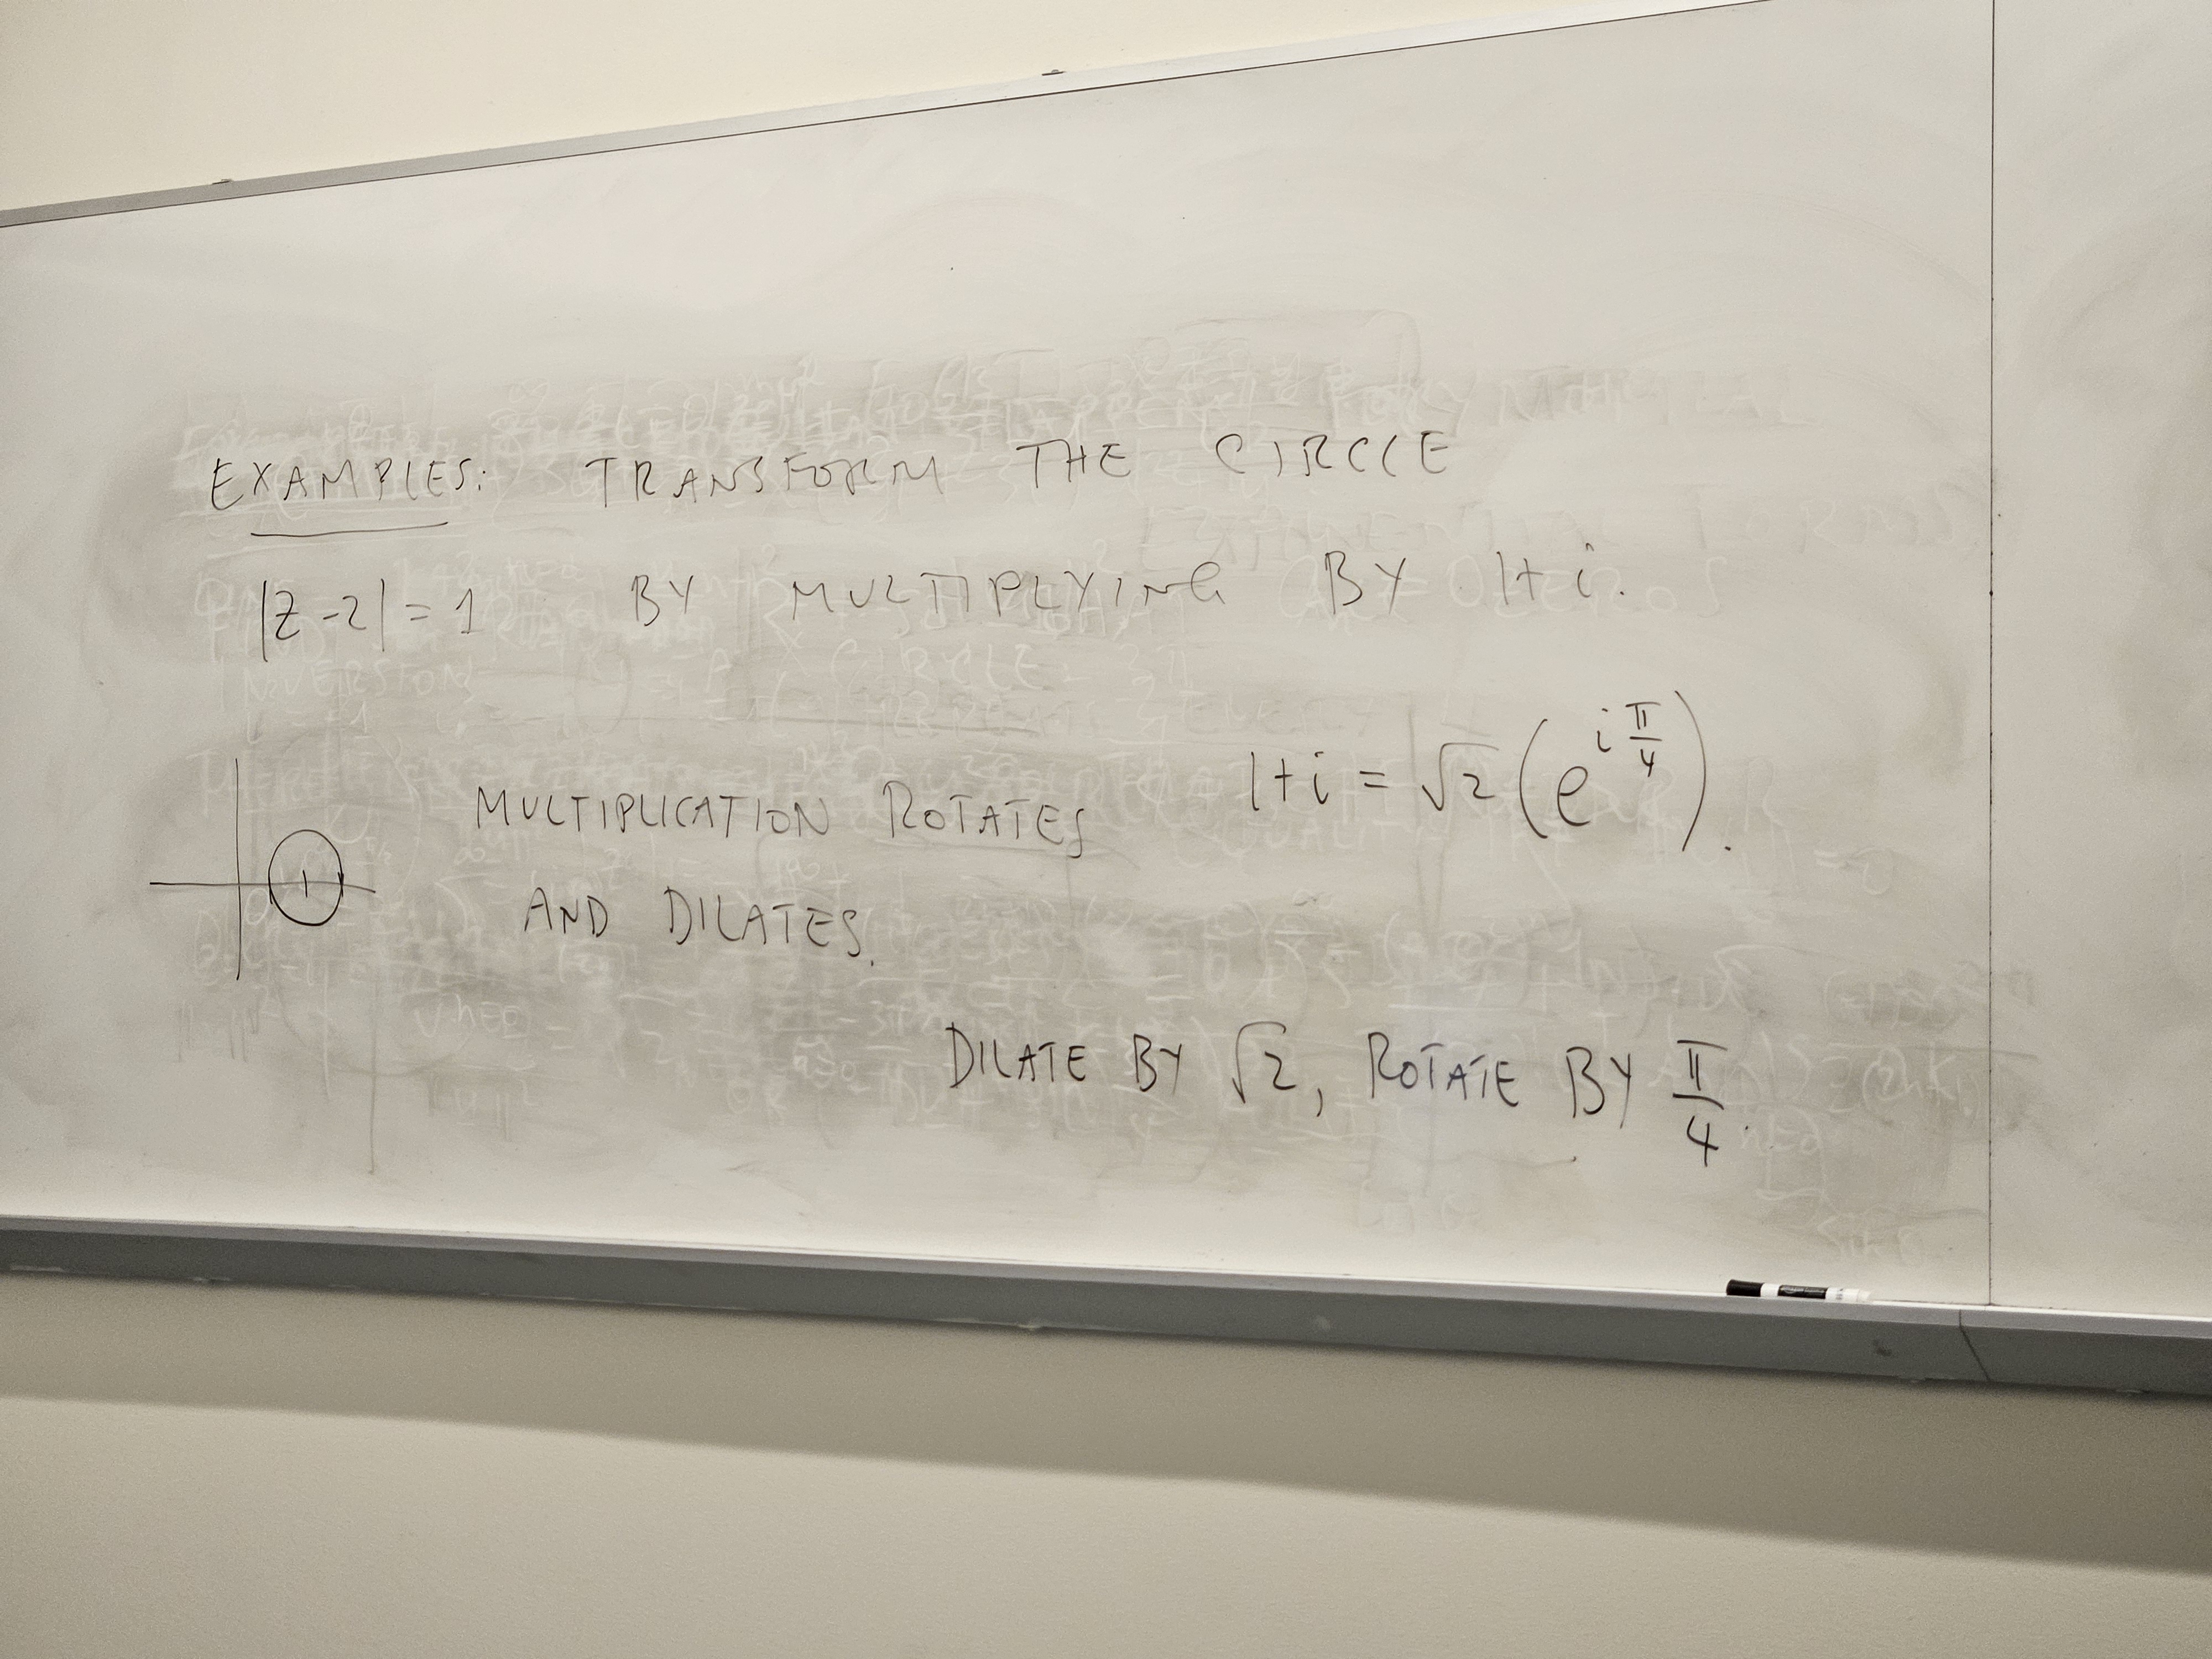 EXAMPLES: TRANSFORM THE CIRCLE
|z-2| = 1 BY MULTIPLYING BY 1+i.
1+i = √2 (e^{i π/4}).
MULTIPLICATION ROTATES
AND DILATES.
DILATE BY √2, ROTATE BY π/4.